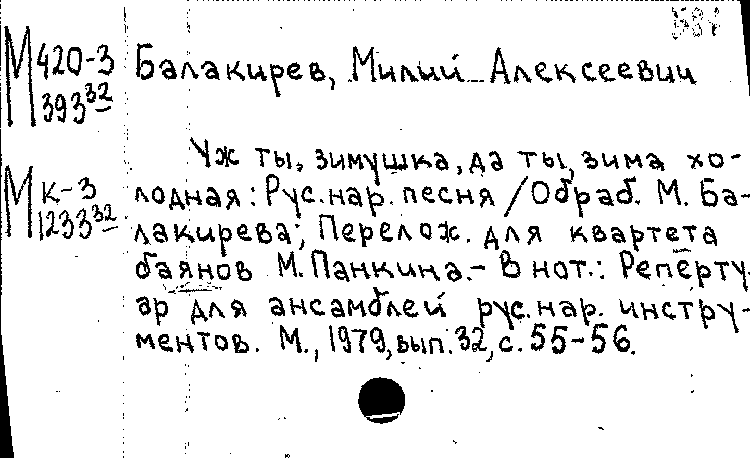 М 420-3 Балакирев, Милий Алексеевич
393 32
Уж ты, зимушка, да ты, зима хо-
М к-3 лодная: Рус. нар. песня / Обраб. М. Ба-
1233 32 лакирева; Перелож. для квартета
баянов М. Панкина. - В нот.: Реперту-
ар для ансамблей рус. нар. инстру-
ментов. М., 1979, вып. 32, с. 55-56.